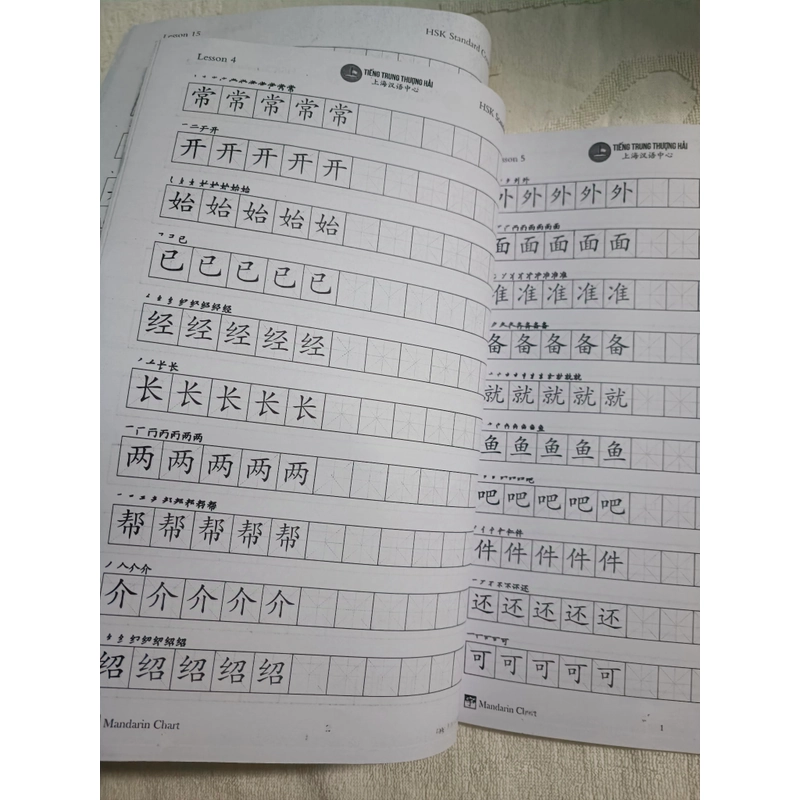 Lesson 15
HSK Standard C
Lesson 4
TIẾNG TRUNG THƯỢNG HẢI
上海汉语中心
HSK Stan
常常常常常
开开开开开
始始始始始
已已已已已
经经经经经
长长长长长
两两两两两
帮帮帮帮帮
介介介介介
绍绍绍绍绍
Mandarin Chart
2
sson 5
TIẾNG TRUNG THƯỢNG HẢI
上海汉语中心
外外外外外
面面面面面
准准准准准
备备备备备
就就就就就
鱼鱼鱼鱼鱼
吧吧吧吧吧
件件件件件
还还还还还
可可可可可
Mandarin Chart
1